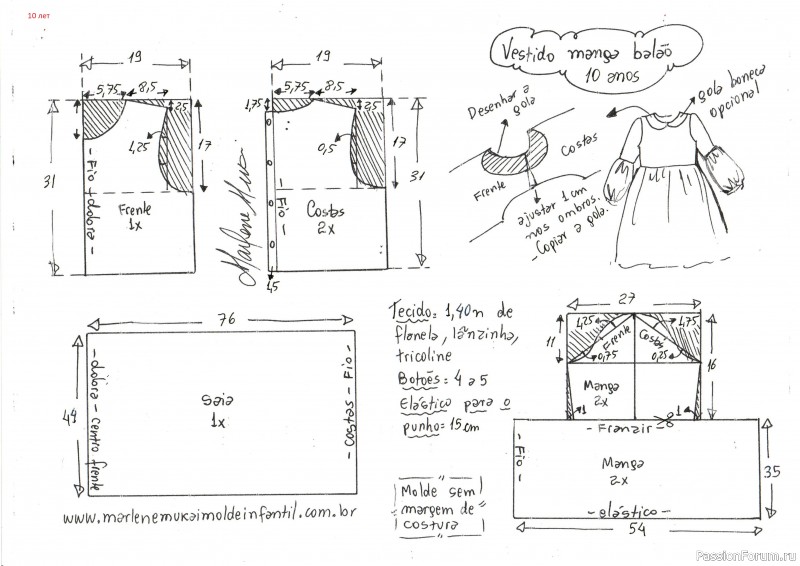 10 лет
Vestido manga balão
10 anos
19
5,75
8,5
2,5
17
4,25
31
- Fio + dobra -
Frente
1x
19
5,75
8,5
1,75
2,5
17
0,5
31
- Fio -
Costas
2x
1,5
Marlene Mukai
Desenhar a
gola
Costas
Frente
ajustar 1 cm
nos ombros.
- Copiar a gola.
gola boneca
opcional
76
49
- dobra - centro frente
Saia
1x
- Costas - Fio -
www.marlenemukaimoldeinfantil.com.br
Tecido: 1,40m de
flanela, lãnzinha,
tricoline
Botões: 4 a 5
Elástico para o
punho = 15 cm
Molde sem
margem de
costura
27
4,25
Frente
Costas
4,75
11
0,75
0,25
16
Manga
2x
1
1
- Franzir -
- Fio -
Manga
2x
35
- elástico -
54
PassionForum.ru